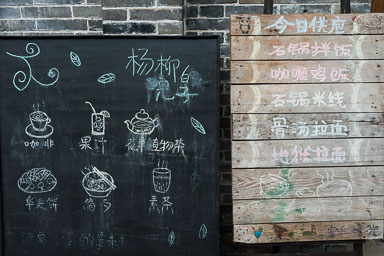 杨柳
咖啡
果汁
花草植物茶
华夫饼
简夕
素茶
今日供应
石锅拌饭
咖喱鸡饭
石锅米线
骨汤拉面
地狱拉面